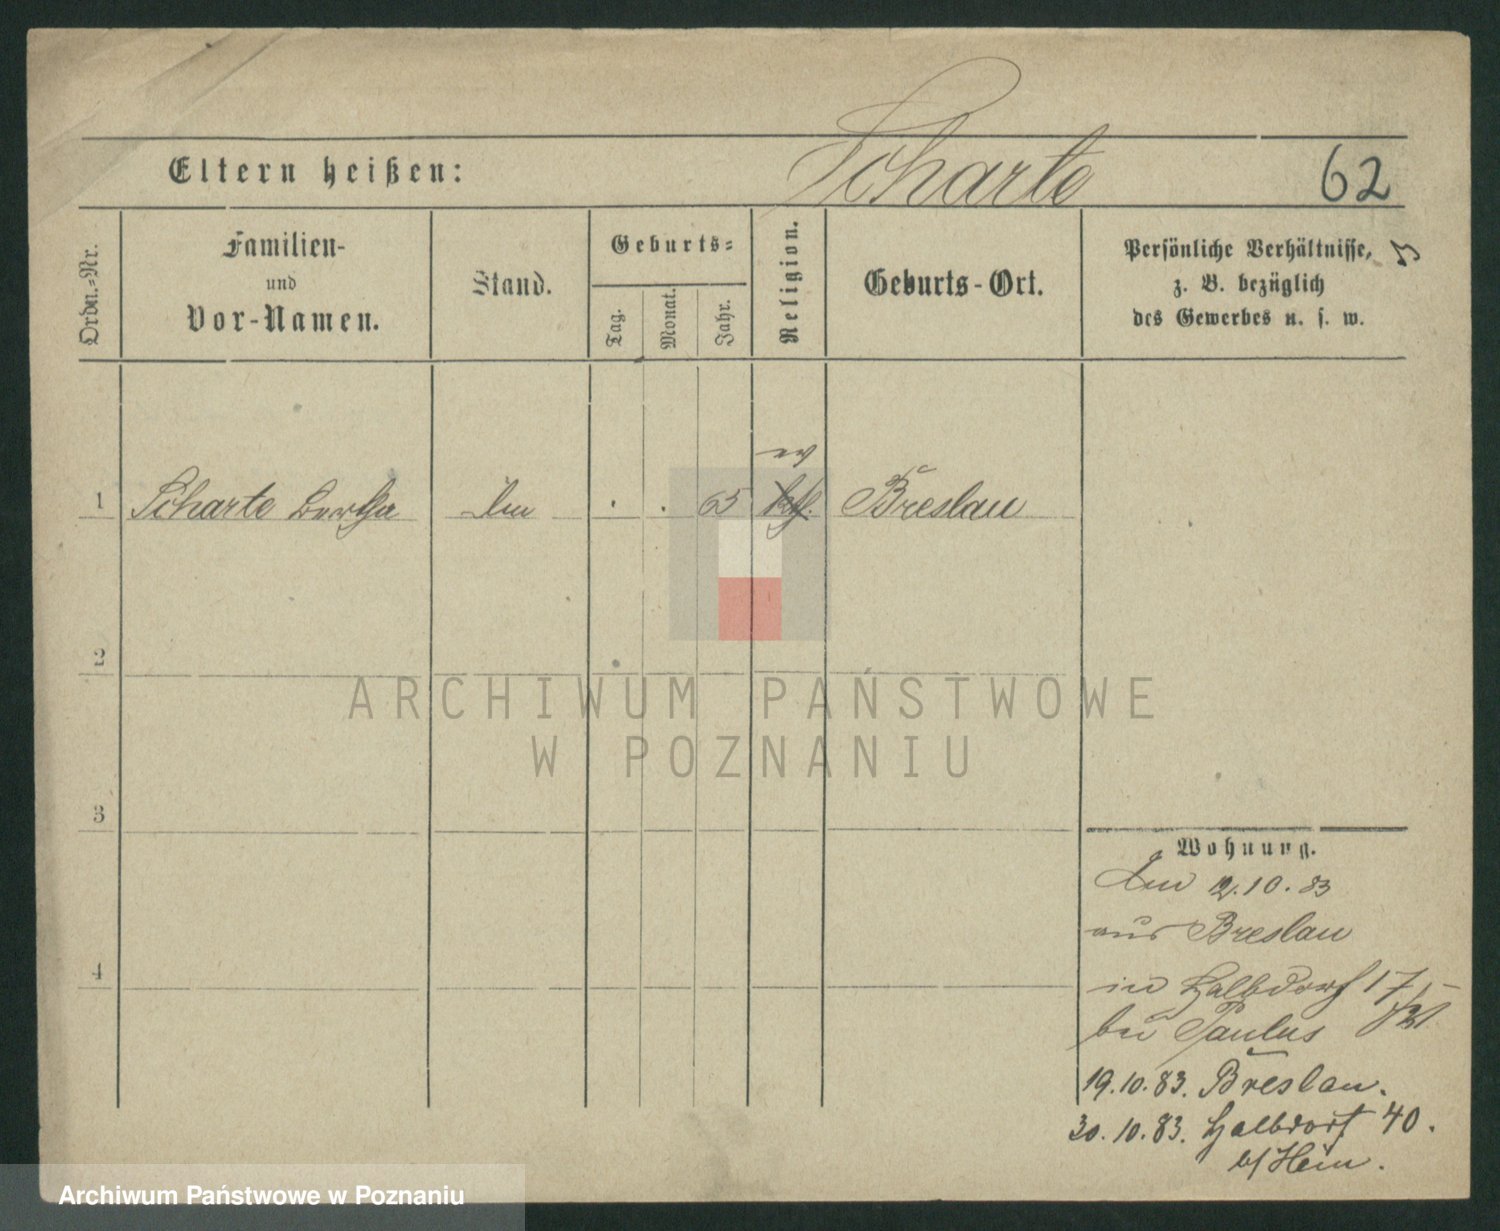 Scharte
Eltern heißen:
62
Ordn.-Nr.
Familien-
und
Vor-Namen.
Stand.
Geburts-
Tag.
Monat.
Jahr.
Religion.
Geburts-Ort.
Persönliche Verhältnisse,
z. B. bezüglich
des Gewerbes u. s. w.
1
Scharte Bertha
65
ev
kth.
Breslau
2
3
4
ARCHIWUM PAŃSTWOWE
W POZNANIU
Wohnung.
12.10.83
aus Breslau
in Halbdorf 17
bei Paulus
19.10.83. Breslau.
30.10.83. Halbdorf 40.
b/ Heim.
Archiwum Państwowe w Poznaniu